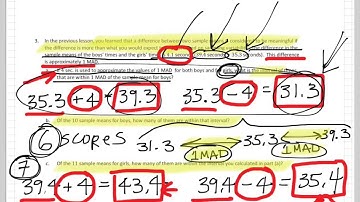 3. In the previous lesson, you learned that a difference between two sample means is considered to be meaningful if
the difference is more than what you would expect
difference in the
sample means of the boys' times and the girls' 4.1 seconds (39.4 seconds 35.3 seconds). This difference
is approximately 1 MAD.
a. If 4 sec. is used to approximate the values of 1 MAD for both boys and for girls, what is the interval of times
that are within 1 MAD of the sample mean for boys?
35.3 + 4 = 39.3 35.3 - 4 = 31.3
b. Of the 10 sample means for boys, how many of them are within that interval?
6 SCORES 31.3 35.3 39.3
1 MAD 1 MAD
c. Of the 11 sample means for girls, how many of them are within the interval you calculated in part (a)?
7
39.4 + 4 = 43.4 39.4 - 4 = 35.4